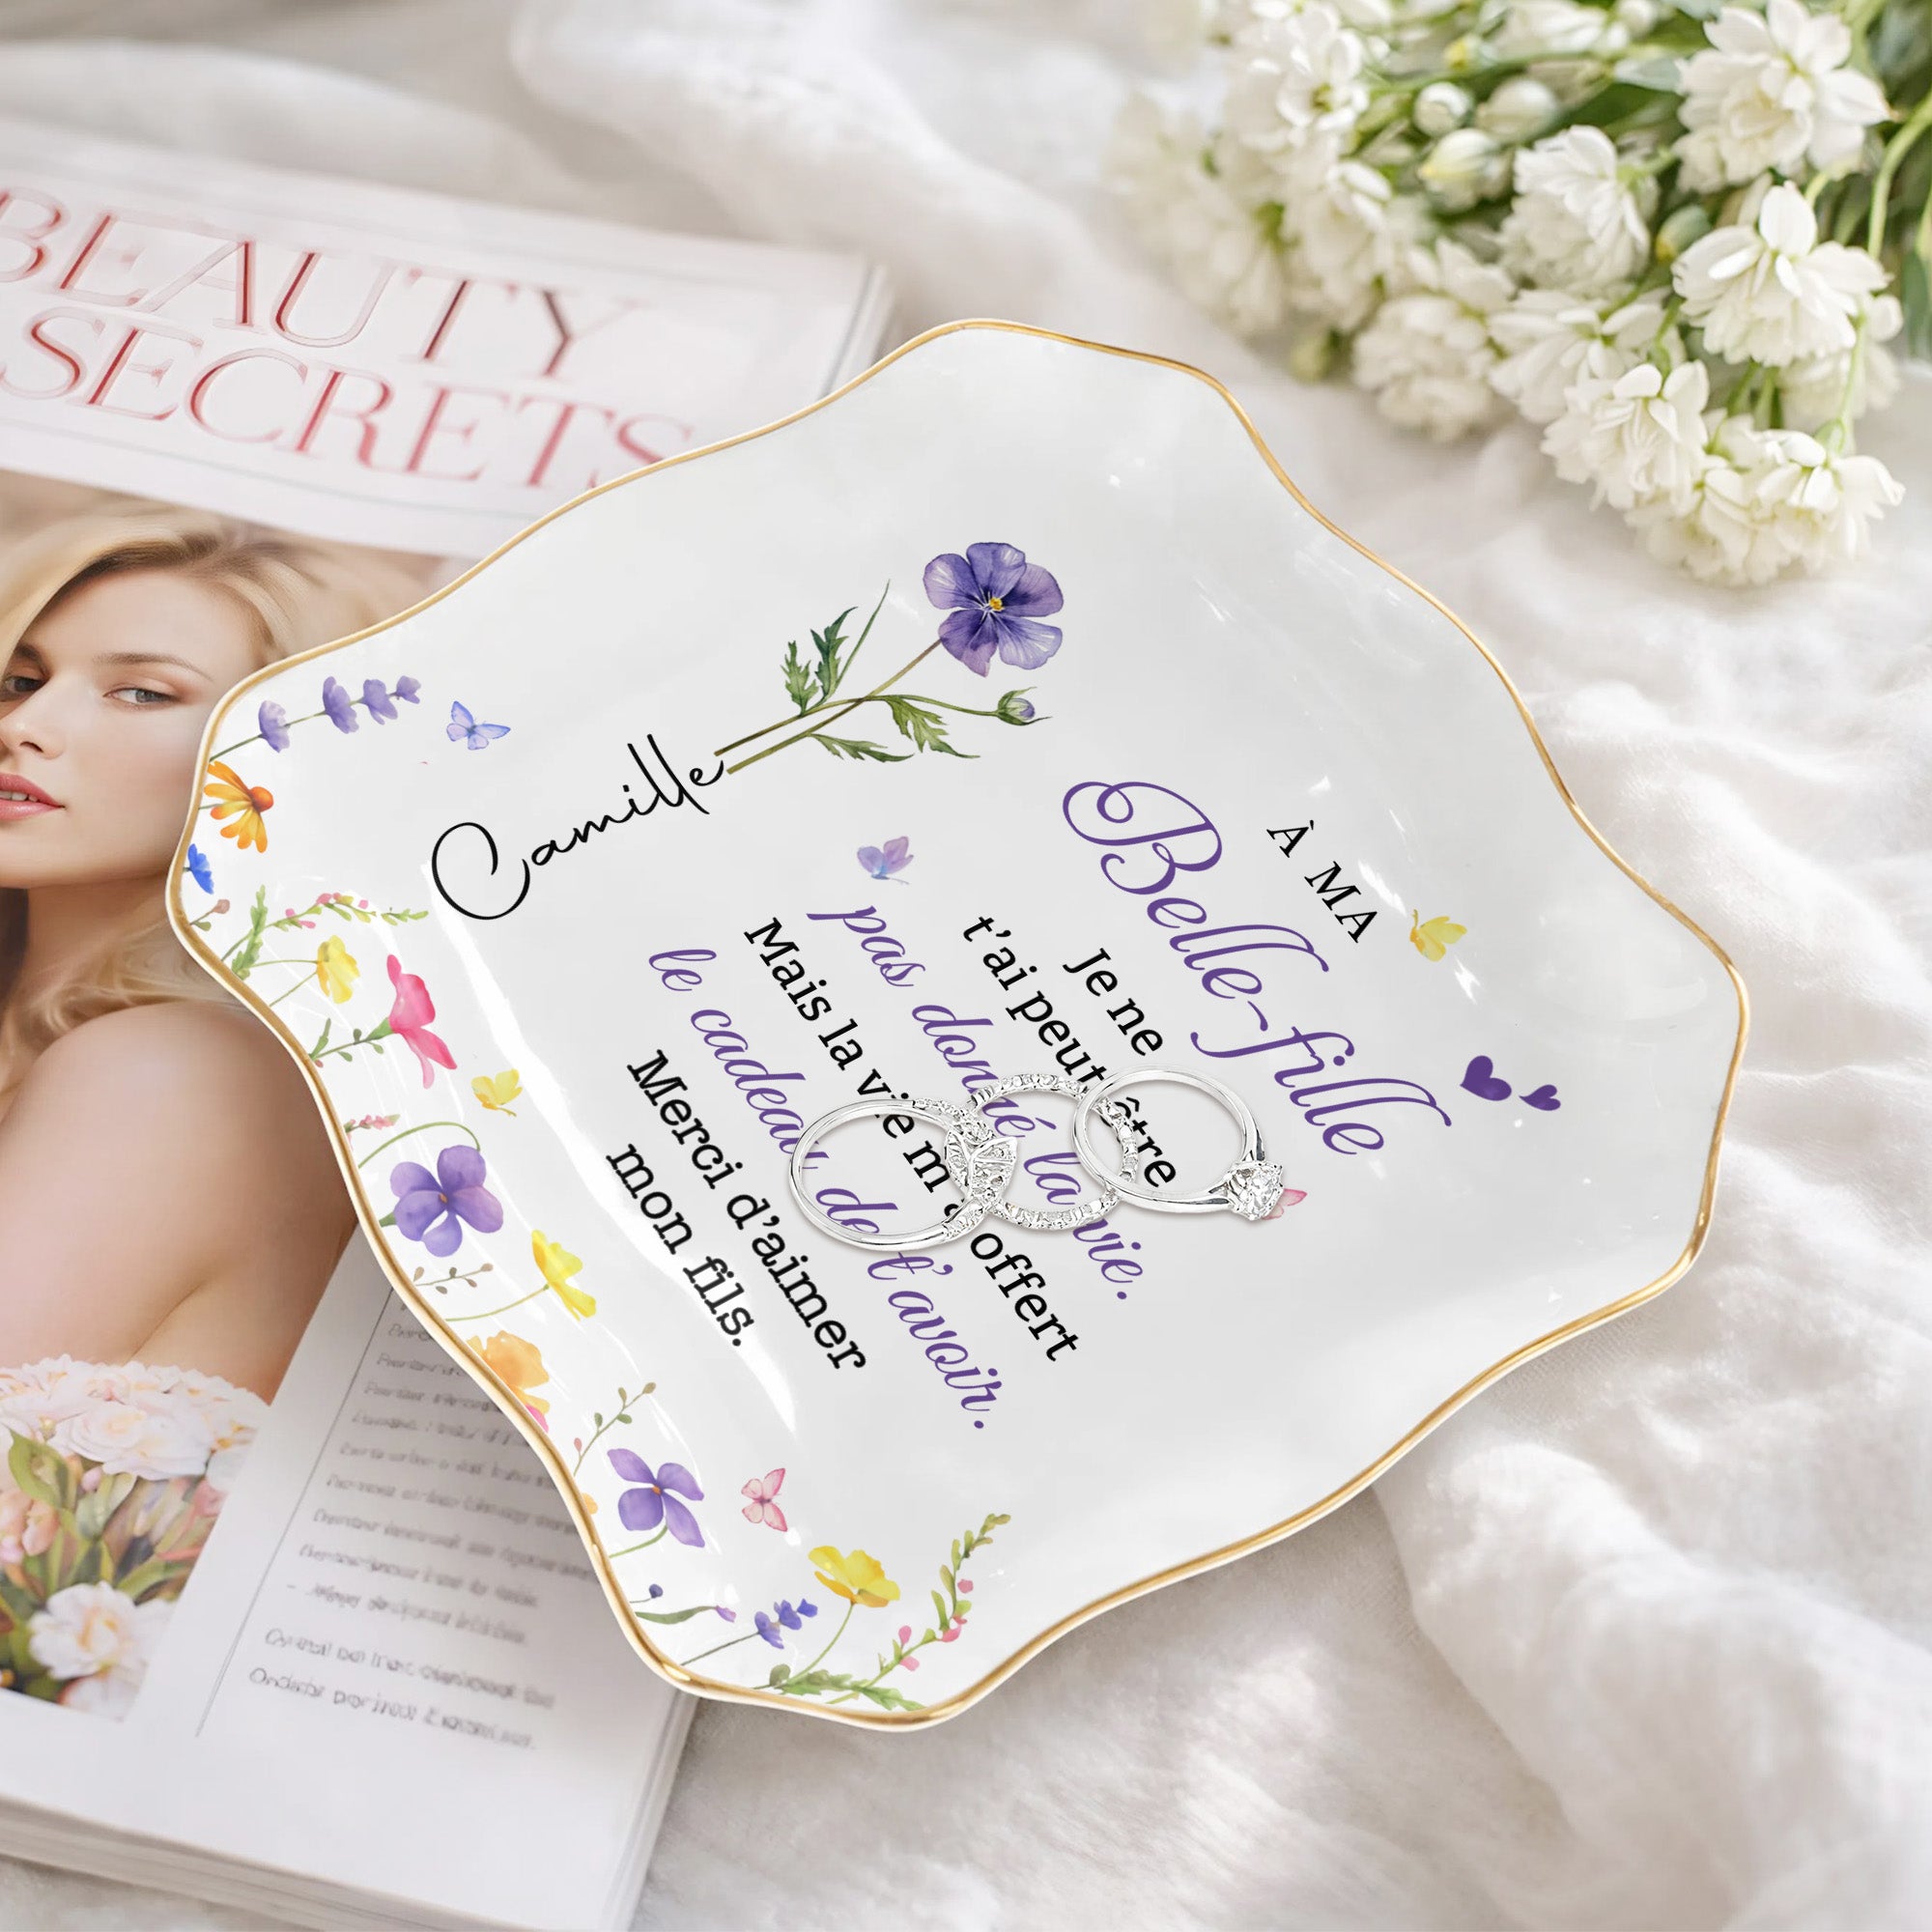 BEAUTY
SECRETS
À MA
Belle-fille
Je ne
t'ai peut-être
pas donné la vie.
Mais la vie m'a offert
le cadeau de t'avoir.
Merci d'aimer
mon fils.
Camille